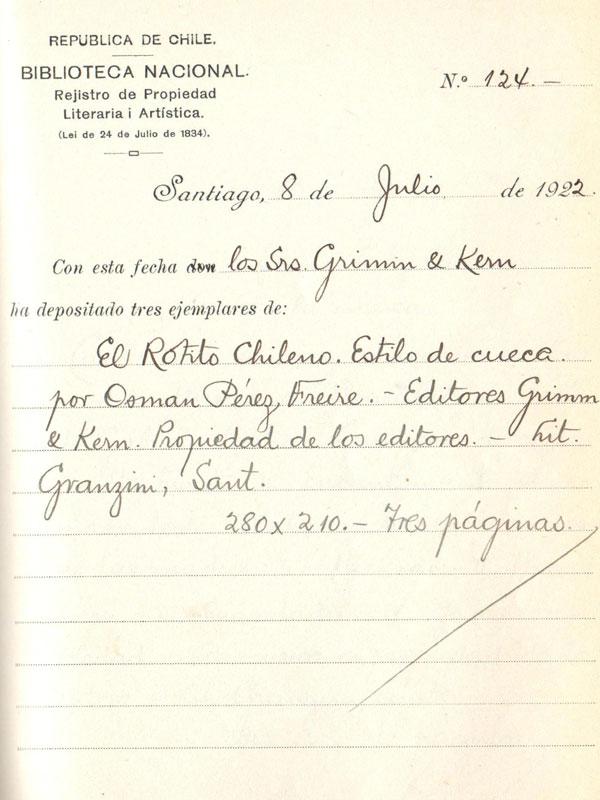 REPUBLICA DE CHILE.
BIBLIOTECA NACIONAL.
Rejistro de Propiedad
Literaria i Artística.
(Lei de 24 de Julio de 1834).
N.º 124.—
Santiago, 8 de Julio de 1922.
Con esta fecha don los Srs. Grimm & Kern
ha depositado tres ejemplares de:
El Rotito Chileno. Estilo de cueca.
por Osman Pérez Freire. – Editores Grimm
& Kern. Propiedad de los editores. – Lit.
Granzini, Sant.
280 x 210. – Tres páginas.